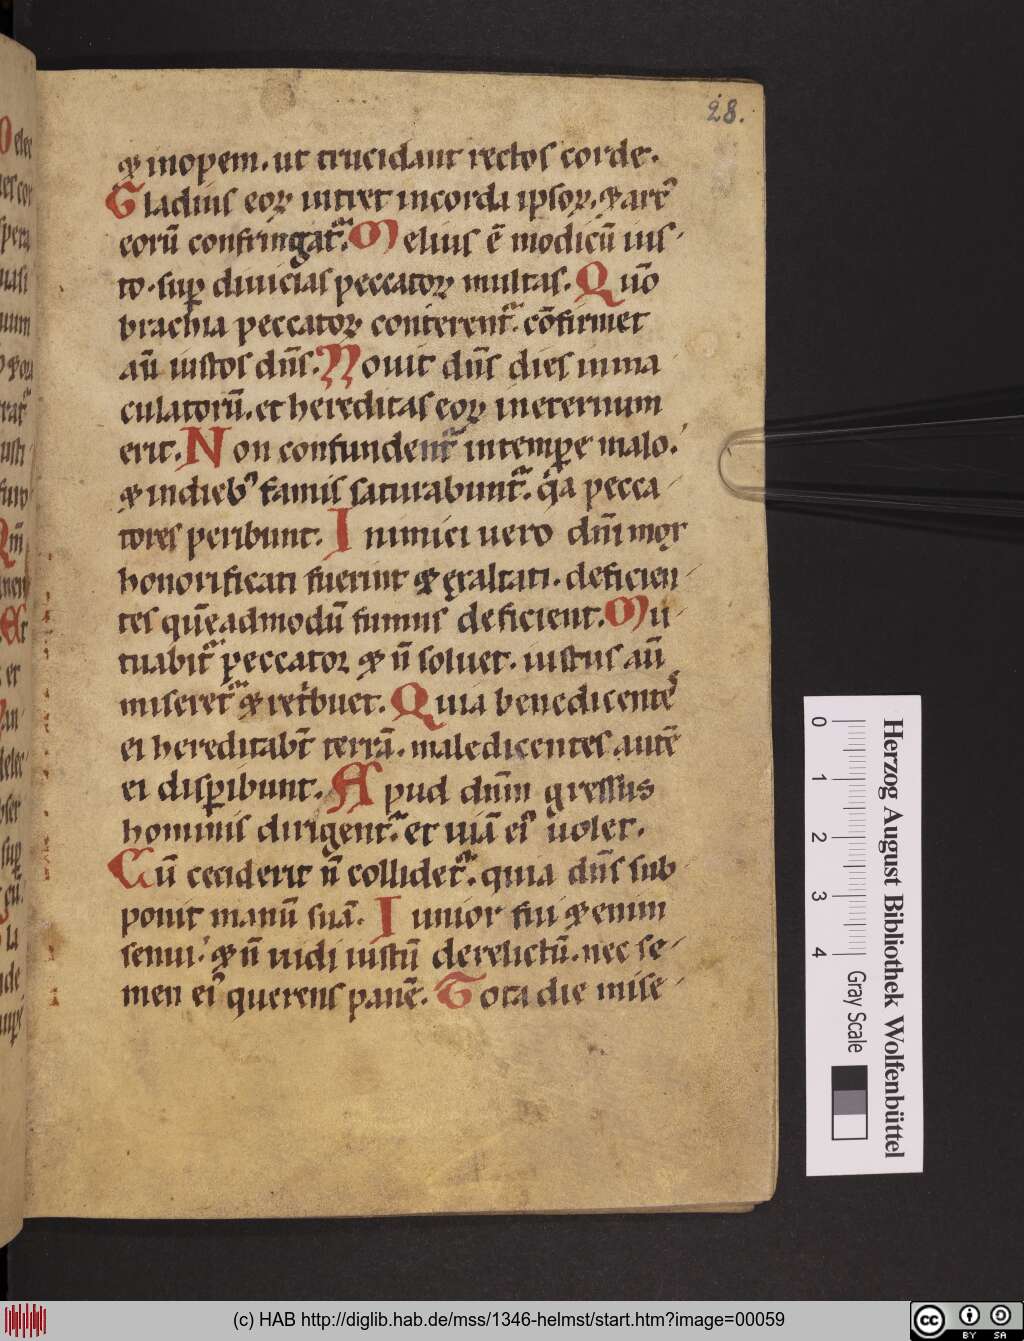 28.
⁊ inopem. ut trucidant rectos corde.
Gladius eoꝝ intret in corda ipsoꝝ. ⁊ arcꝰ
eorū confringat᷑. Melius ē modicū ius
to. suꝑ diuicias peccatoꝝ multas. Qm̄
brachia peccatoꝝ conterent᷑. cōfirmet
aū iustos dn̄s. Nouit dn̄s dies inma
culatorū. et hereditas eoꝝ ineternum
erit. Non confundent᷑ in tempe malo.
⁊ in diebꝰ famis saturabunt᷑. qa pecca
tores peribunt. Inimici uero dn̄i mox
honorificati fuerint ⁊ exaltati. deficien
tes quēadmodū fumus deficient. Mu
tuabit᷑ peccator ⁊ n̄ soluet. iustus aū
miseret᷑ ⁊ retͥbuet. Quia benedicentes
ei hereditabt̄ terrā. maledicentes autē
ei disꝑibunt. Apud dn̄m gressus
hominis dirigent᷑. et uiā eiꝰ uolet.
Cū ceciderit n̄ collidet᷑. quia dn̄s sub
ponit manū suā. Iunior fui ⁊ enim
senui. ⁊ n̄ uidi iustū derelictū. nec se
men eiꝰ querens panē. Tota die mise
Herzog August Bibliothek Wolfenbüttel
0 1 2 3 4 Gray Scale
(c) HAB http://diglib.hab.de/mss/1346-helmst/start.htm?image=00059
cc BY SA